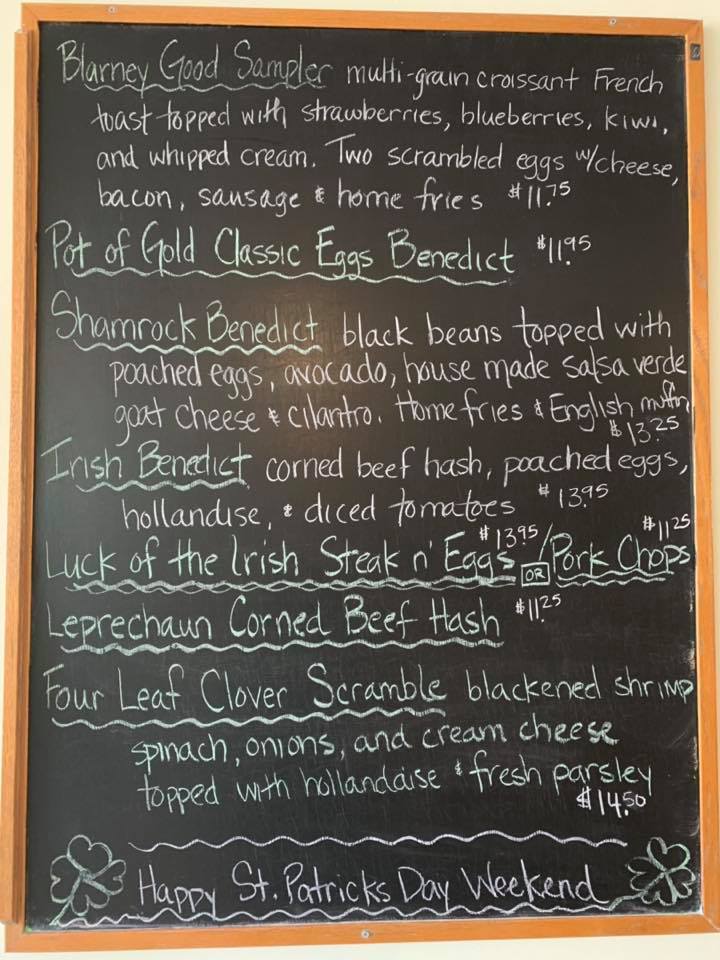 Blarney Good Sampler multi-grain croissant French
toast topped with strawberries, blueberries, kiwi,
and whipped cream. Two scrambled eggs w/cheese,
bacon, sausage & home fries $11.75
Pot of Gold Classic Eggs Benedict $11.95
Shamrock Benedict black beans topped with
poached eggs, avocado, house made salsa verde
goat cheese & cilantro. Home fries & English muffin
$13.25
Irish Benedict corned beef hash, poached eggs,
hollandise, & diced tomatoes $13.95
Luck of the Irish Steak n' Eggs $13.95 / OR Pork Chops $11.25
Leprechaun Corned Beef Hash $11.25
Four Leaf Clover Scramble blackened shrimp
spinach, onions, and cream cheese
topped with hollandaise & fresh parsley
$14.50
Happy St. Patricks Day Weekend